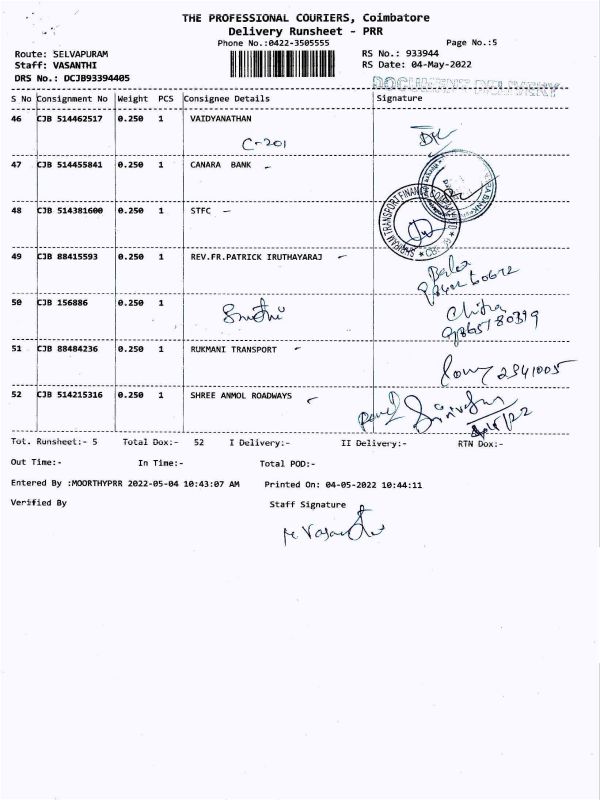 THE PROFESSIONAL COURIERS, Coimbatore
Delivery Runsheet - PRR
Phone No.:0422-3505555 Page No.:5
Route: SELVAPURAM RS No.: 933944
Staff: VASANTHI RS Date: 04-May-2022
DRS No.: DCJB93394405
DOCUMENT DELIVERY
S No Consignment No Weight PCS Consignee Details Signature
46 CJB 514462517 0.250 1 VAIDYANATHAN
C-201
47 CJB 514455841 0.250 1 CANARA BANK -
48 CJB 514381600 0.250 1 STFC -
SHRIRAM TRANSPORT FINANCE COMPANY LTD * CBE
49 CJB 88415593 0.250 1 REV.FR.PATRICK IRUTHAYARAJ -
50 CJB 156886 0.250 1
Chitra
9865780399
51 CJB 88484236 0.250 1 RUKMANI TRANSPORT -
2541005
52 CJB 514215316 0.250 1 SHREE ANMOL ROADWAYS
Tot. Runsheet:- 5 Total Dox:- 52 I Delivery:- II Delivery:- RTN Dox:-
Out Time:- In Time:- Total POD:-
Entered By :MOORTHYPRR 2022-05-04 10:43:07 AM Printed On: 04-05-2022 10:44:11
Verified By Staff Signature